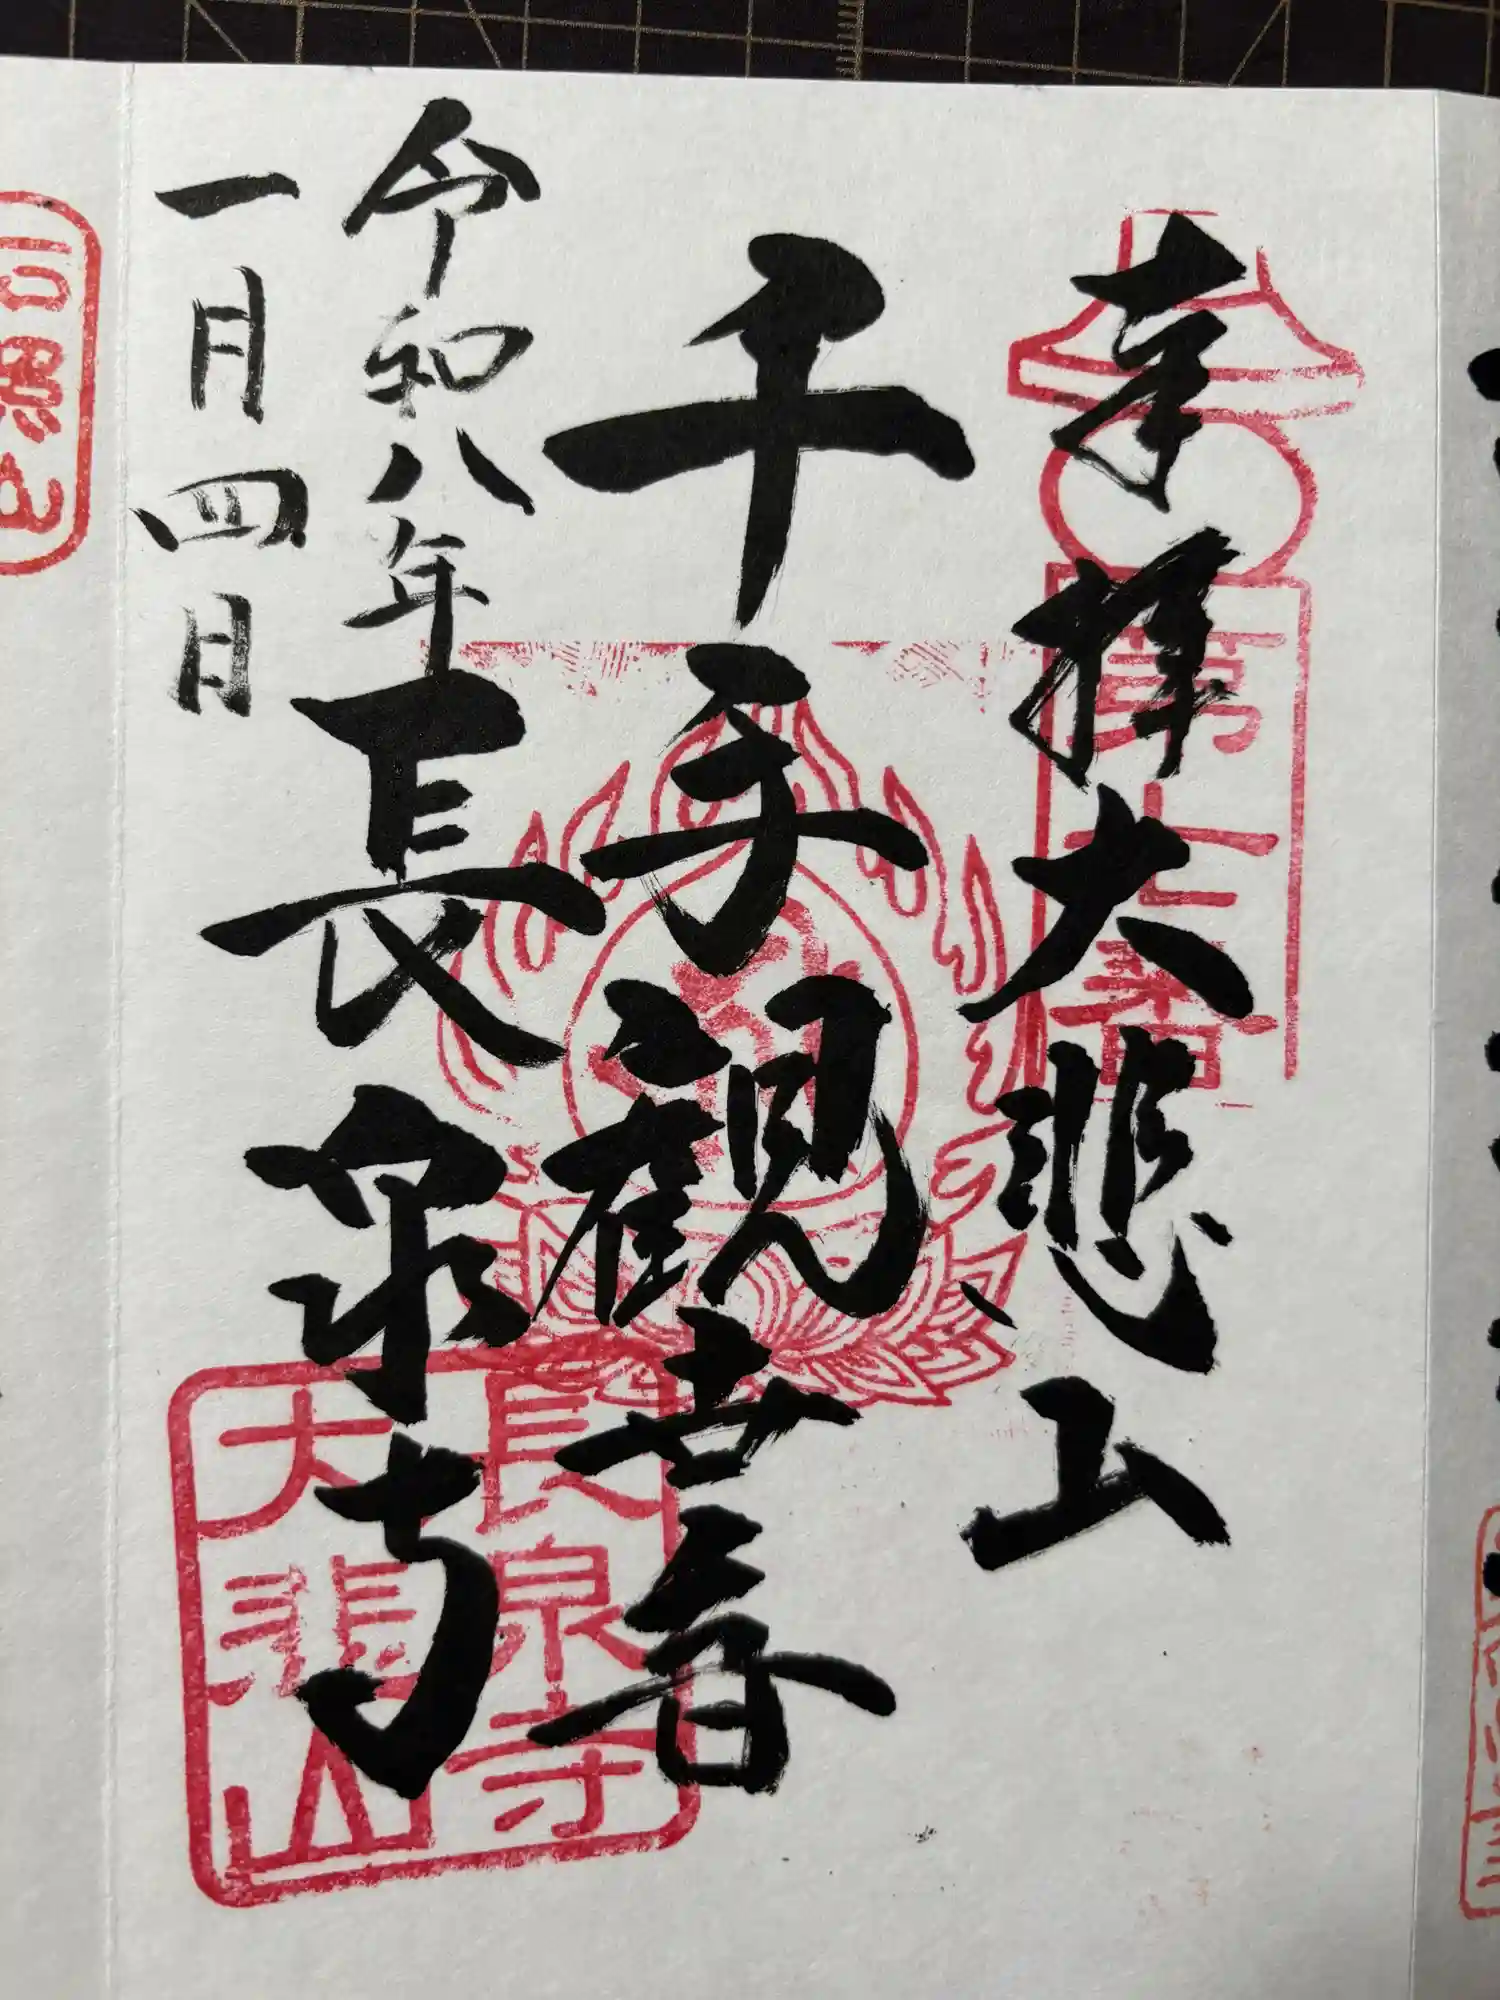 奉拝大悲山
千手観世音
長泉寺
令和八年
一月四日
第七番
長泉寺
大悲山